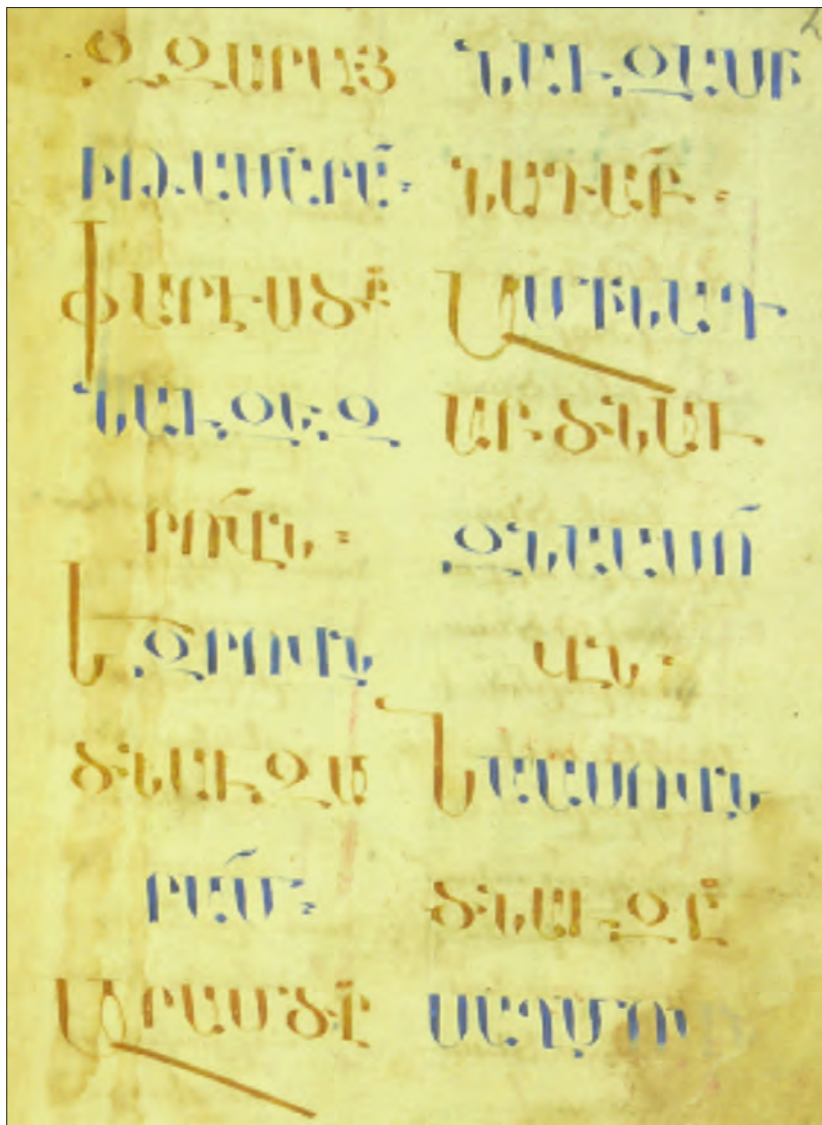 ԶԶԱՐԱՅ
ԻԹԱՄԱՐԱ՛։
ՓԱՐԷՍԾԸ
ՆԱՒԶԵԶ
ՐՈ՛ՎՆ։
ԵԶՐՈՎՆ
ԾՆԱՒԶԱ
ՐԱ՛Մ։
ԱՐԱՄԾԸ
ՆԱՒԶԱՄԻ
ՆԱԴԱ՛Բ։
ԱՄԻՆԱԴ
ԱԲԾՆԱՒ
ԶՆԱԱՍՈ՛
ՎՆ։
ՆԱԱՍՈՎՆ
ԾՆԱՒԶԸ
ՍԱՂՄՈՎ